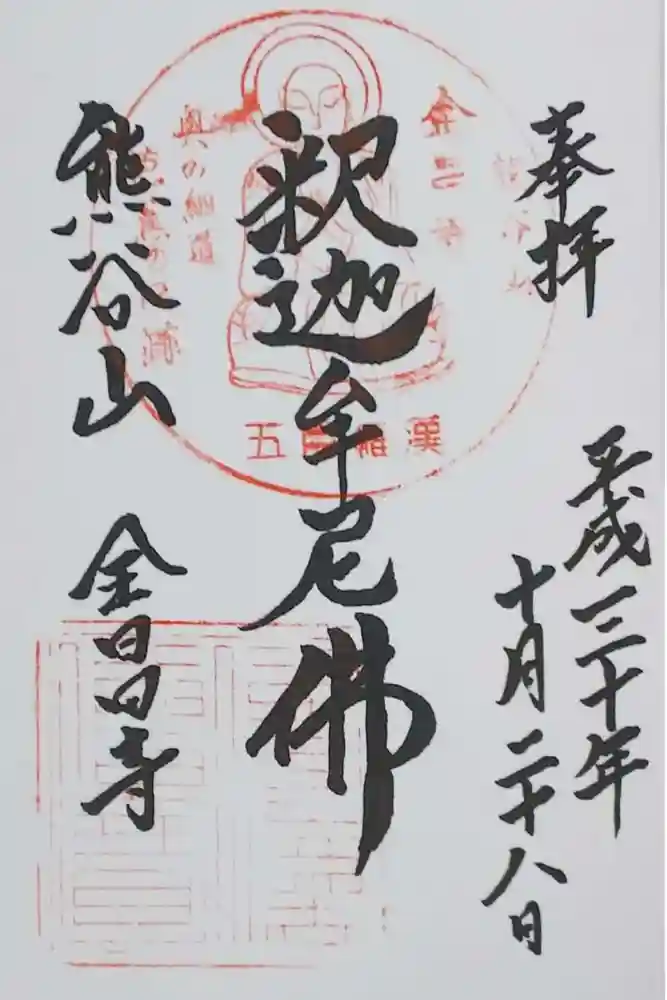 奉拝
平成三十年
十月二十八日
釈迦牟尼佛
熊谷山 金昌寺
金昌寺
奥の細道
五百羅漢